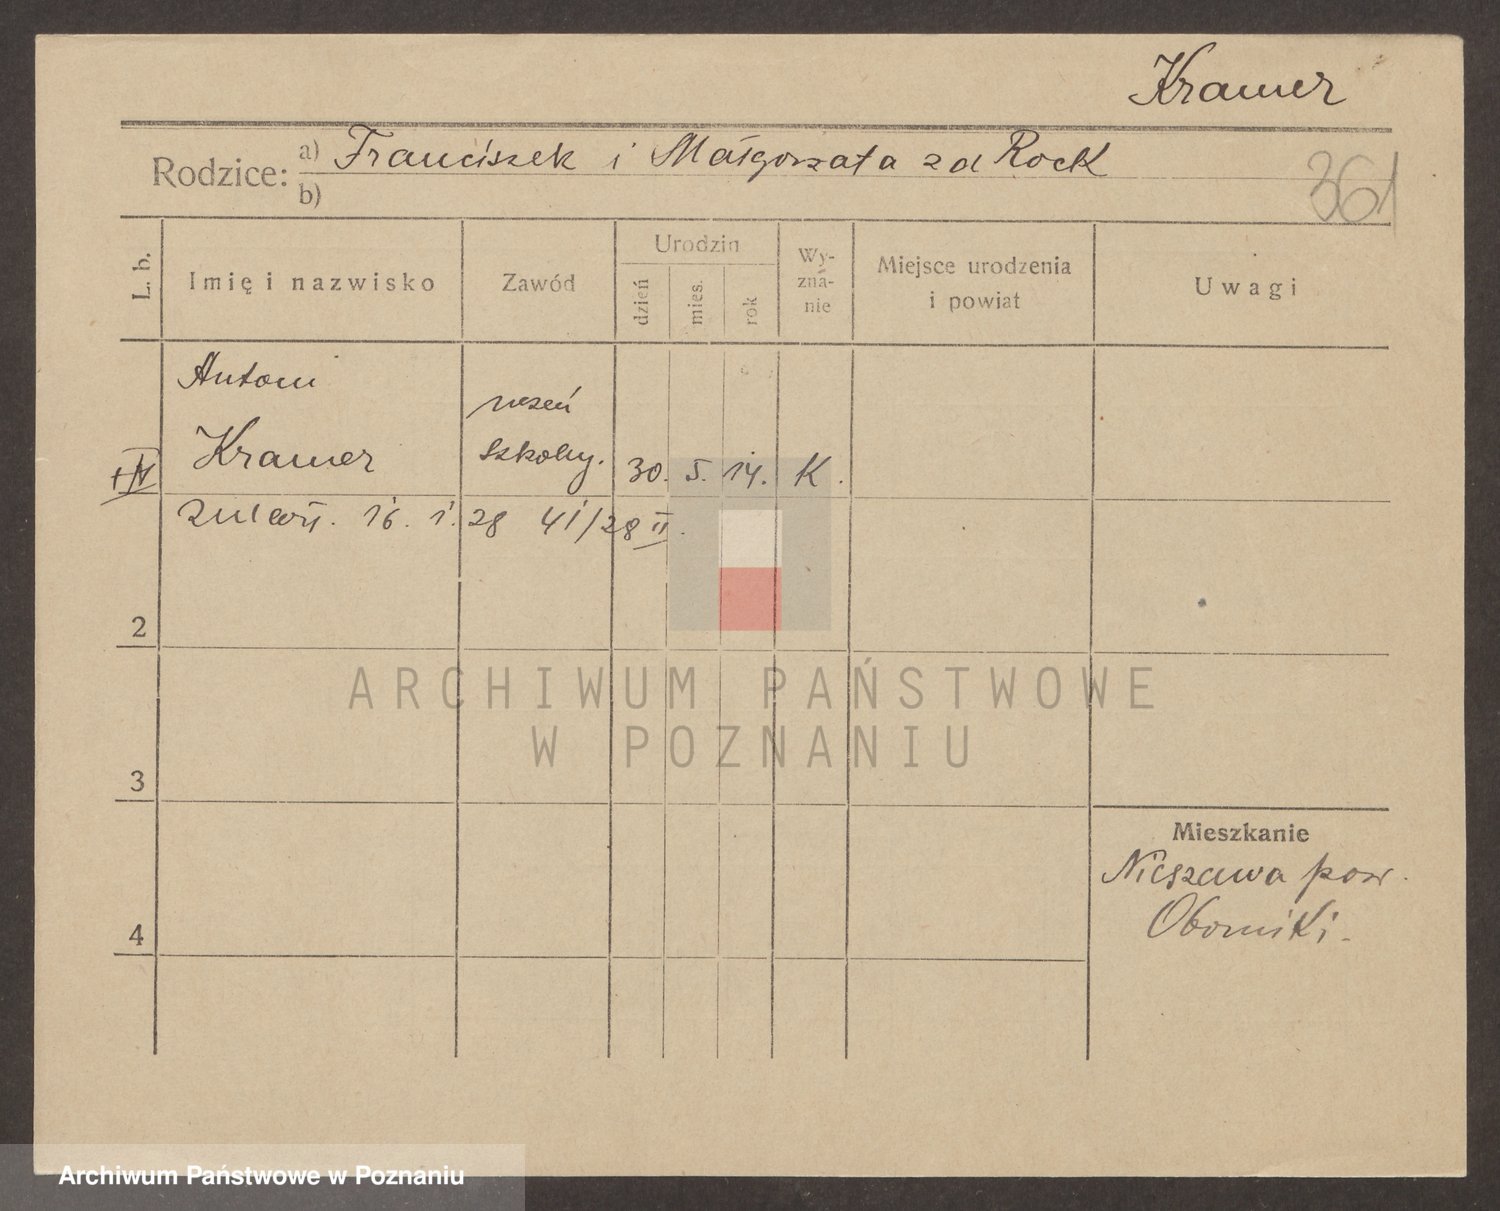 Kramer
Rodzice: a) Franciszek i Małgorzata zd Rock
b)
361
L. b.
Imię i nazwisko
Zawód
Urodzin
dzień
mies.
rok
Wy-
zna-
nie
Miejsce urodzenia
i powiat
Uwagi
Antoni
uczeń
Kramer
szkolny.
30. 5. 14. K.
16. 1. 28 41/28 II.
2
ARCHIWUM PAŃSTWOWE
W POZNANIU
3
Mieszkanie
Nieszawa pow.
Oborniki.
4
Archiwum Państwowe w Poznaniu